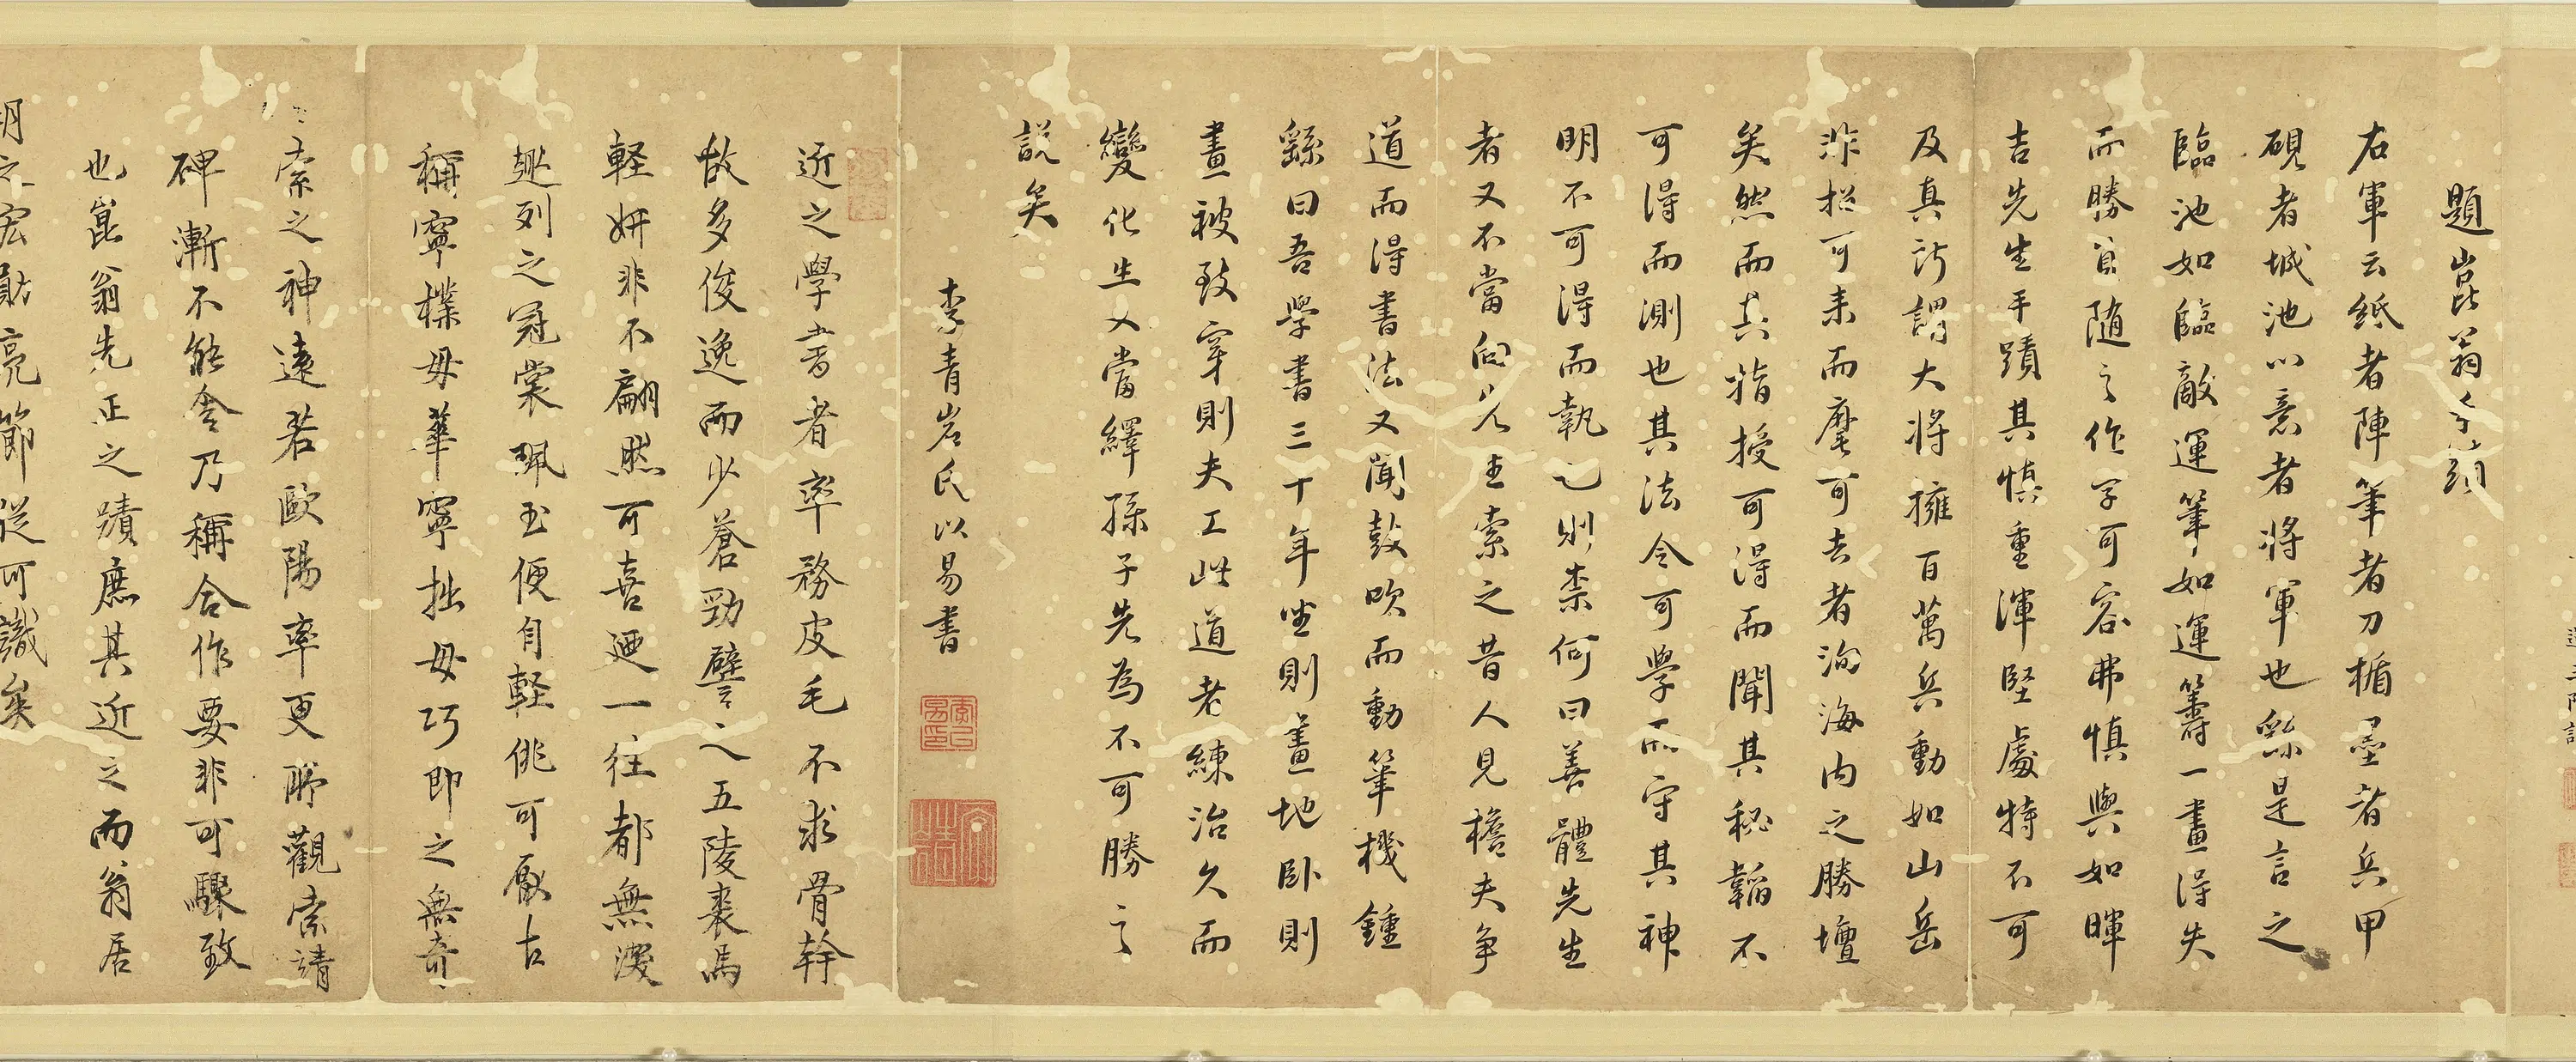 題崑翁手蹟
右軍云紙者陣筆者刀楯墨者兵甲
硯者城池心意者將軍也繇是言之
臨池如臨敵運筆如運籌一畫得失
而勝負隨之作字可容弗慎與如暉
吉先生手蹟其慎重渾堅處特不可
及真所謂大將擁百萬兵動如山岳
非招可來而麾可去者洵海內之勝壇
矣然而其指授可得而聞其秘韜不
可得而測也其法令可學而守其神
明不可得而執也則柰何曰善體先生
者又不當向先生索之昔人見擔夫爭
道而得書法又聞鼓吹而動筆機鍾
繇曰吾學書三十年坐則畫地臥則
畫被致穿則夫工此道老練治久而
變化生又當繹孫子先為不可勝之
説矣
李青岩氏以易書
近之學書者率務皮毛不求骨幹
故多俊逸而少蒼勁譬之五陵裘馬
軽妍非不翩然可喜迺一往都無深
趣列之冠裳珮玉便自軽佻可厭古
稱寧樸毋華寧拙毋巧即之無奇
索之神遠若歐陽率更眎觀索靖
碑漸不能舍乃稱合作要非可驟致
也崑翁先正之蹟庶其近之而翁居
朝之宏猷亮節從可識矣